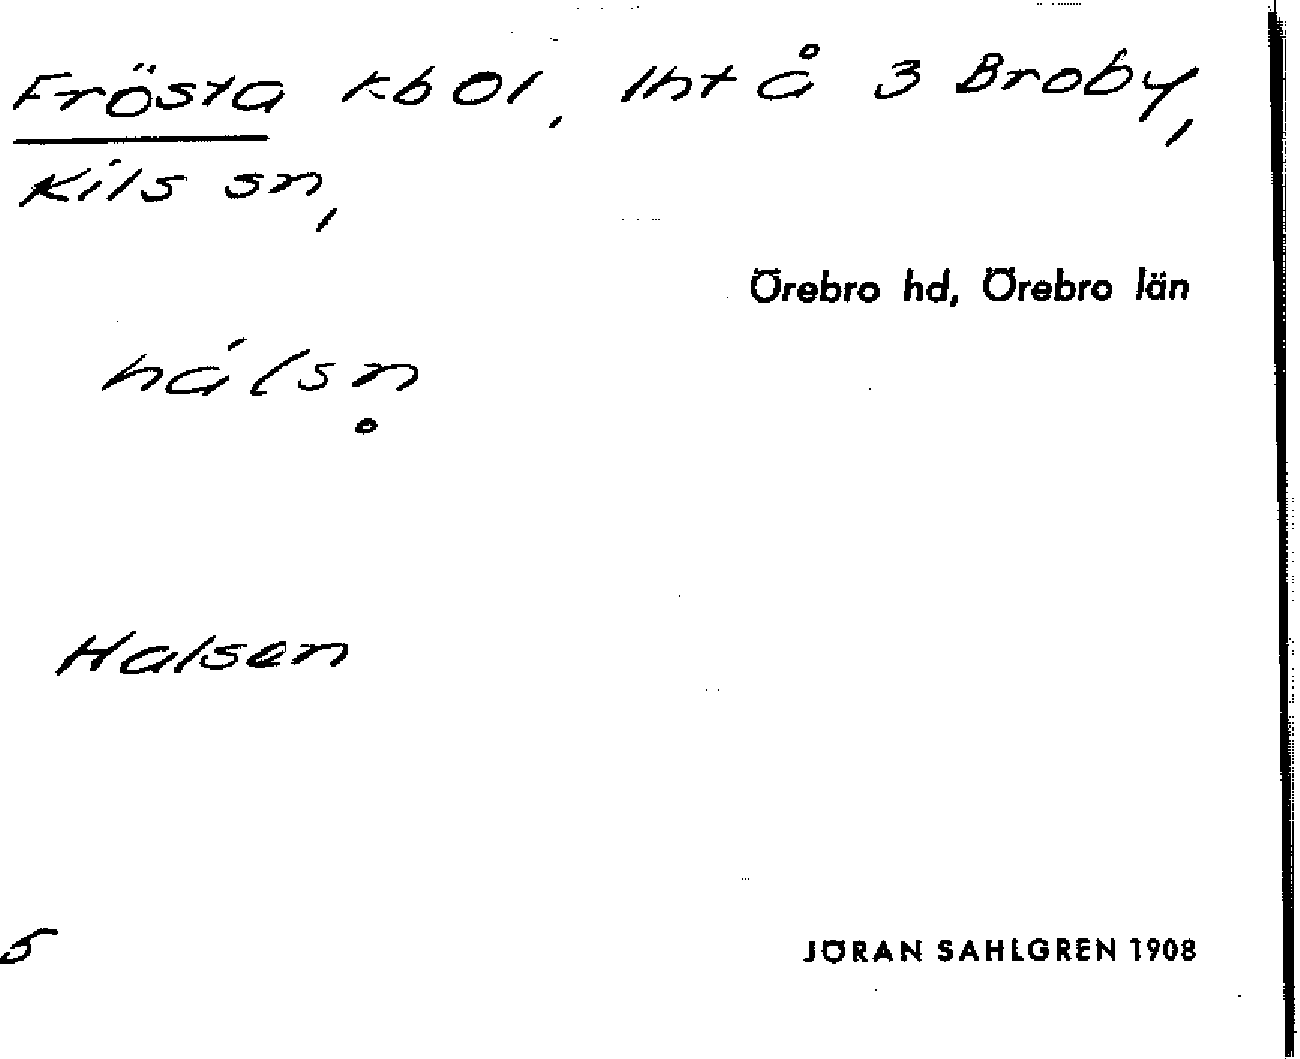 Frösta kbol, Int å 3 Broby,
Kils sn,
Örebro hd, Örebro län
hálsn̥
Halsen
5
JÖRAN SAHLGREN 1908